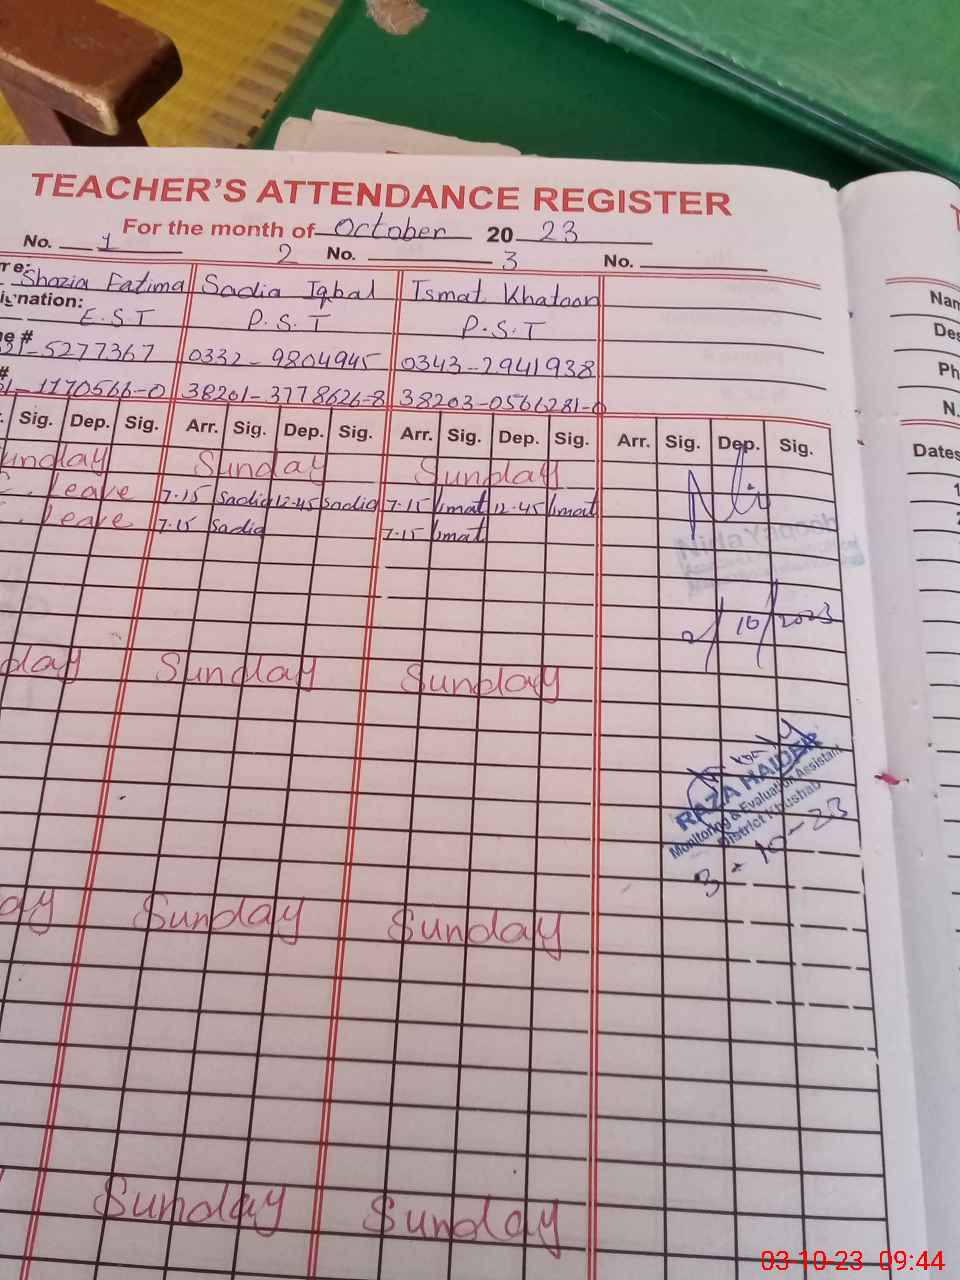 TEACHER'S ATTENDANCE REGISTER
For the month of October 20 23
No. 1 2 No. 3 No.
Shazia Fatima Sadia Iqbal Ismat Khatoon
ignation:
E.S.T P.S.T P.S.T
e # 21-5277367 0332-9804945 0343-2941938
# 1-1170566-0 38201-3778626-8 38203-0566281-0
Sig. Dep. Sig. Arr. Sig. Dep. Sig. Arr. Sig. Dep. Sig. Arr. Sig. Dep. Sig.
unday Sunday Sunday
Leave 7.15 Sadia 12.45 Sadia 7.15 Ismat 12.45 Ismat
Leave 7.15 Sadia 7.15 Ismat
2/10/2023
day Sunday Sunday
RAZA HAIDER
Monitoring & Evaluation Assistant
District Khushab
3-10-23
ay Sunday Sunday
Sunday Sunday
Nam
Des
Ph
N.
Dates
1
2
03-10-23 09:44